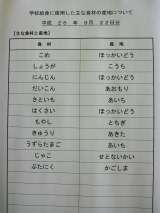 学校給食に使用した主な食材の産地について
平成 26 年 9月 22日分
【主な食材と産地】
食材 産地
こめ ほっかいどう
しょうが こうち
にんじん ほっかいどう
だいこん あおもり
さといも あいち
たまねぎ ほっかいどう
もやし とちぎ
きゅうり あきた
うずらたまご あいち
じゃこ せとないかい
ぶたにく かごしま